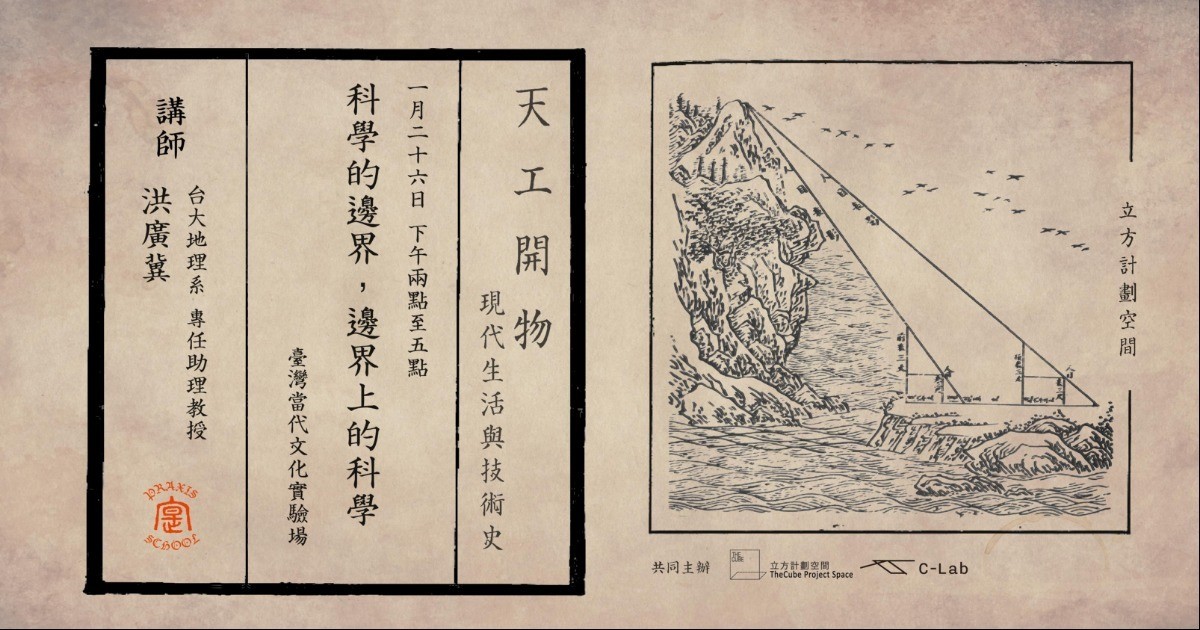 天工開物
現代生活與技術史
一月二十六日 下午兩點至五點
科學的邊界，邊界上的科學
臺灣當代文化實驗場
講師 洪廣冀
台大地理系 專任助理教授
PRAXIS
SCHOOL
立方計劃空間
共同主辦
THE CUBE
立方計劃空間
TheCube Project Space
C-Lab